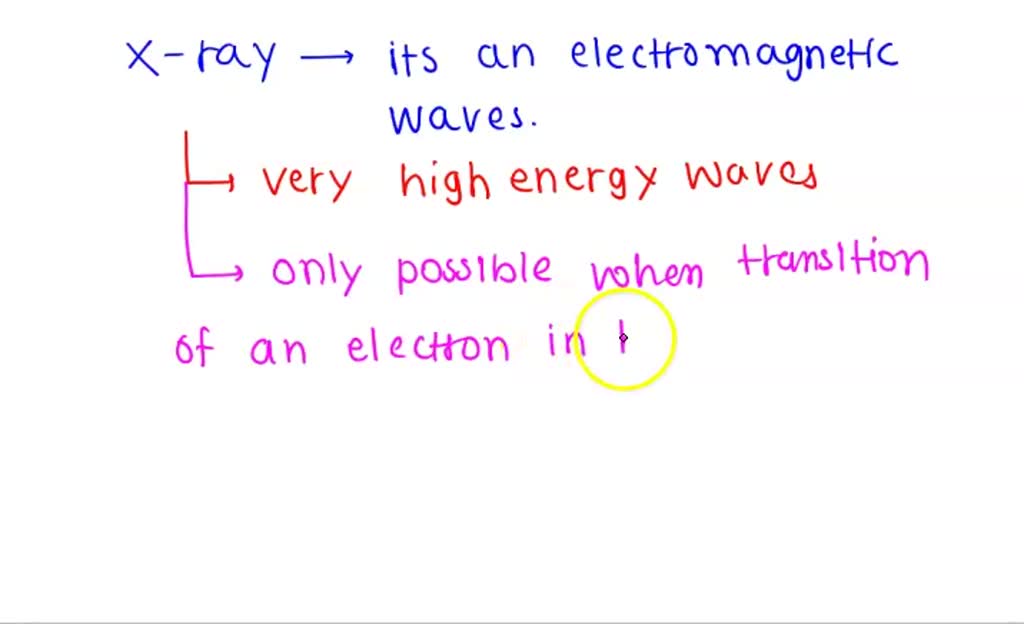 x-ray → its an electromagnetic
waves.
very high energy waves
only possible when transition
of an electron in